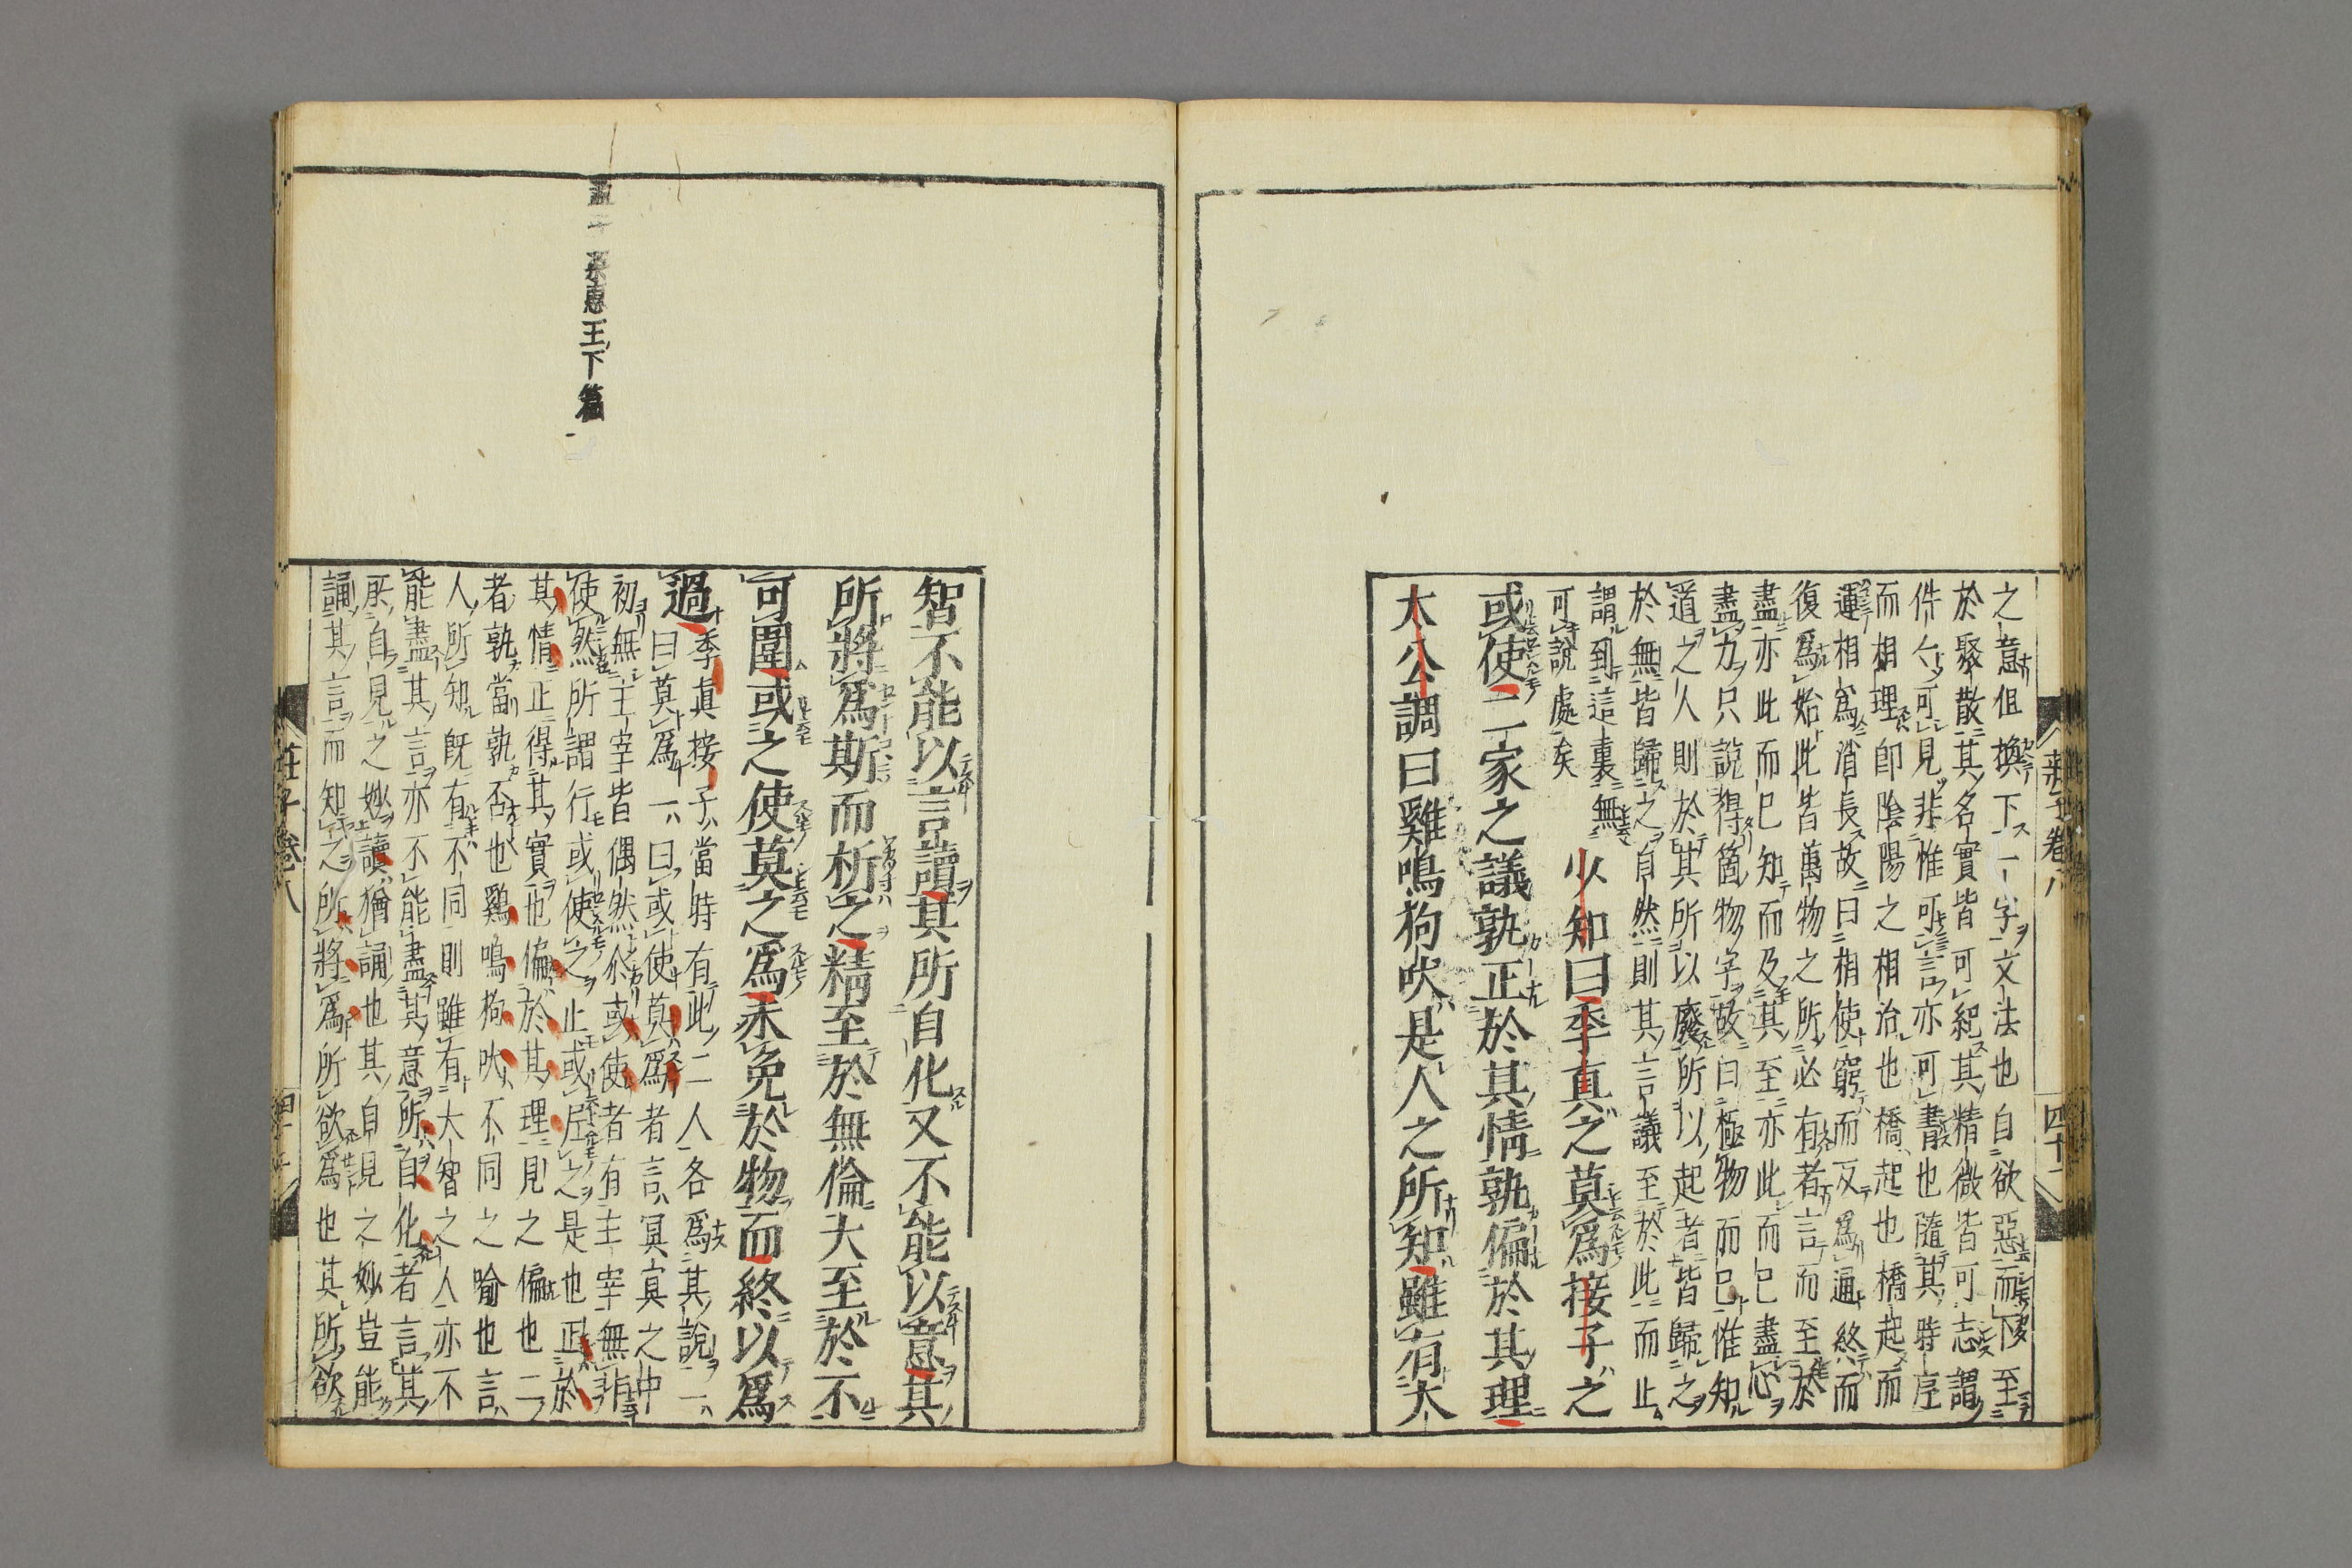 莊子卷八
四十一
之意但換下一字文法也自欲惡而下至
於聚散其名實皆可紀其精微皆可志謂
件件可見非惟可言亦可書也隨其時序
而相理即陰陽之相治也橋起也橋起而
運相為消長故曰相使窮而反為遍終而
復為始此皆萬物之所必有者言而至於
盡亦此而已知而及其至亦此而已盡心
盡力只說得箇物字故曰極物而已惟知
道之人則於其所以廢所以起者皆歸之
於無皆歸之自然則其言議至於此而止
謂到這裏無
可說處矣
少知曰季真之莫為接子之
或使二家之議孰正於其情孰偏於其理
太公調曰雞鳴狗吠是人之所知雖有大
智不能以言讀其所自化又不能以意其
所將為斯而析之精至於無倫大至於不
可圍或之使莫之為未免於物而終以為
過
季真接子當時有此二人各為其說一
曰莫為一曰或使莫為者言冥冥之中
初無主宰皆偶然爾或使者有主宰無非
使然所謂行或使之止或尼之是也正於
其情正得其實也偏於其理見之偏也二
者孰當孰否也鷄鳴狗吠不同之喻也言
人所知既有不同則雖有大智之人亦不
能盡其言亦不能盡其意所自化者言其
所自見之妙讀猶誦也其自見之妙豈能
誦其言而知之所將為所欲為也其所欲
梁惠王下篇
莊子卷八